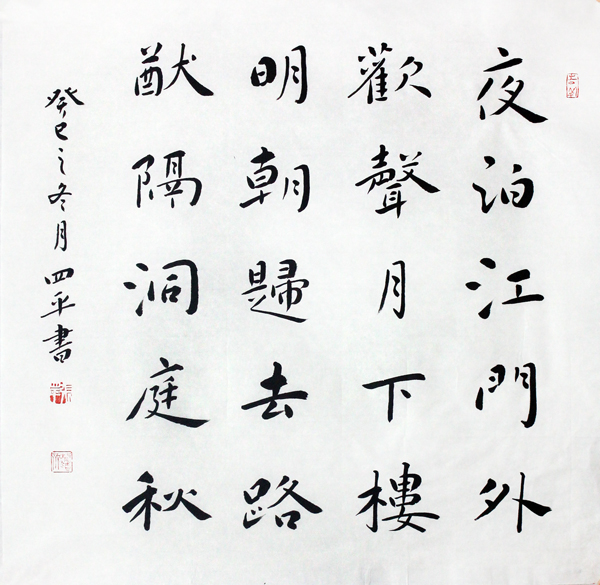 夜泊江門外
歡聲月下樓
明朝歸去路
猷隔洞庭秋
癸巳之冬月四平書